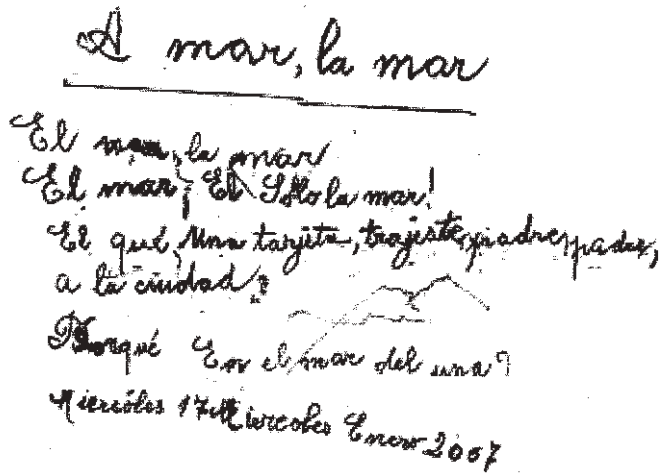 A mar, la mar
El mar, la mar
El mar, ¡El Sólo la mar!
El qué, Una tarjeta, trajiste, padre, padre,
a la ciudad?
Porqué En el mar del una?
Miercoles 17 Miercoles Enero 2007